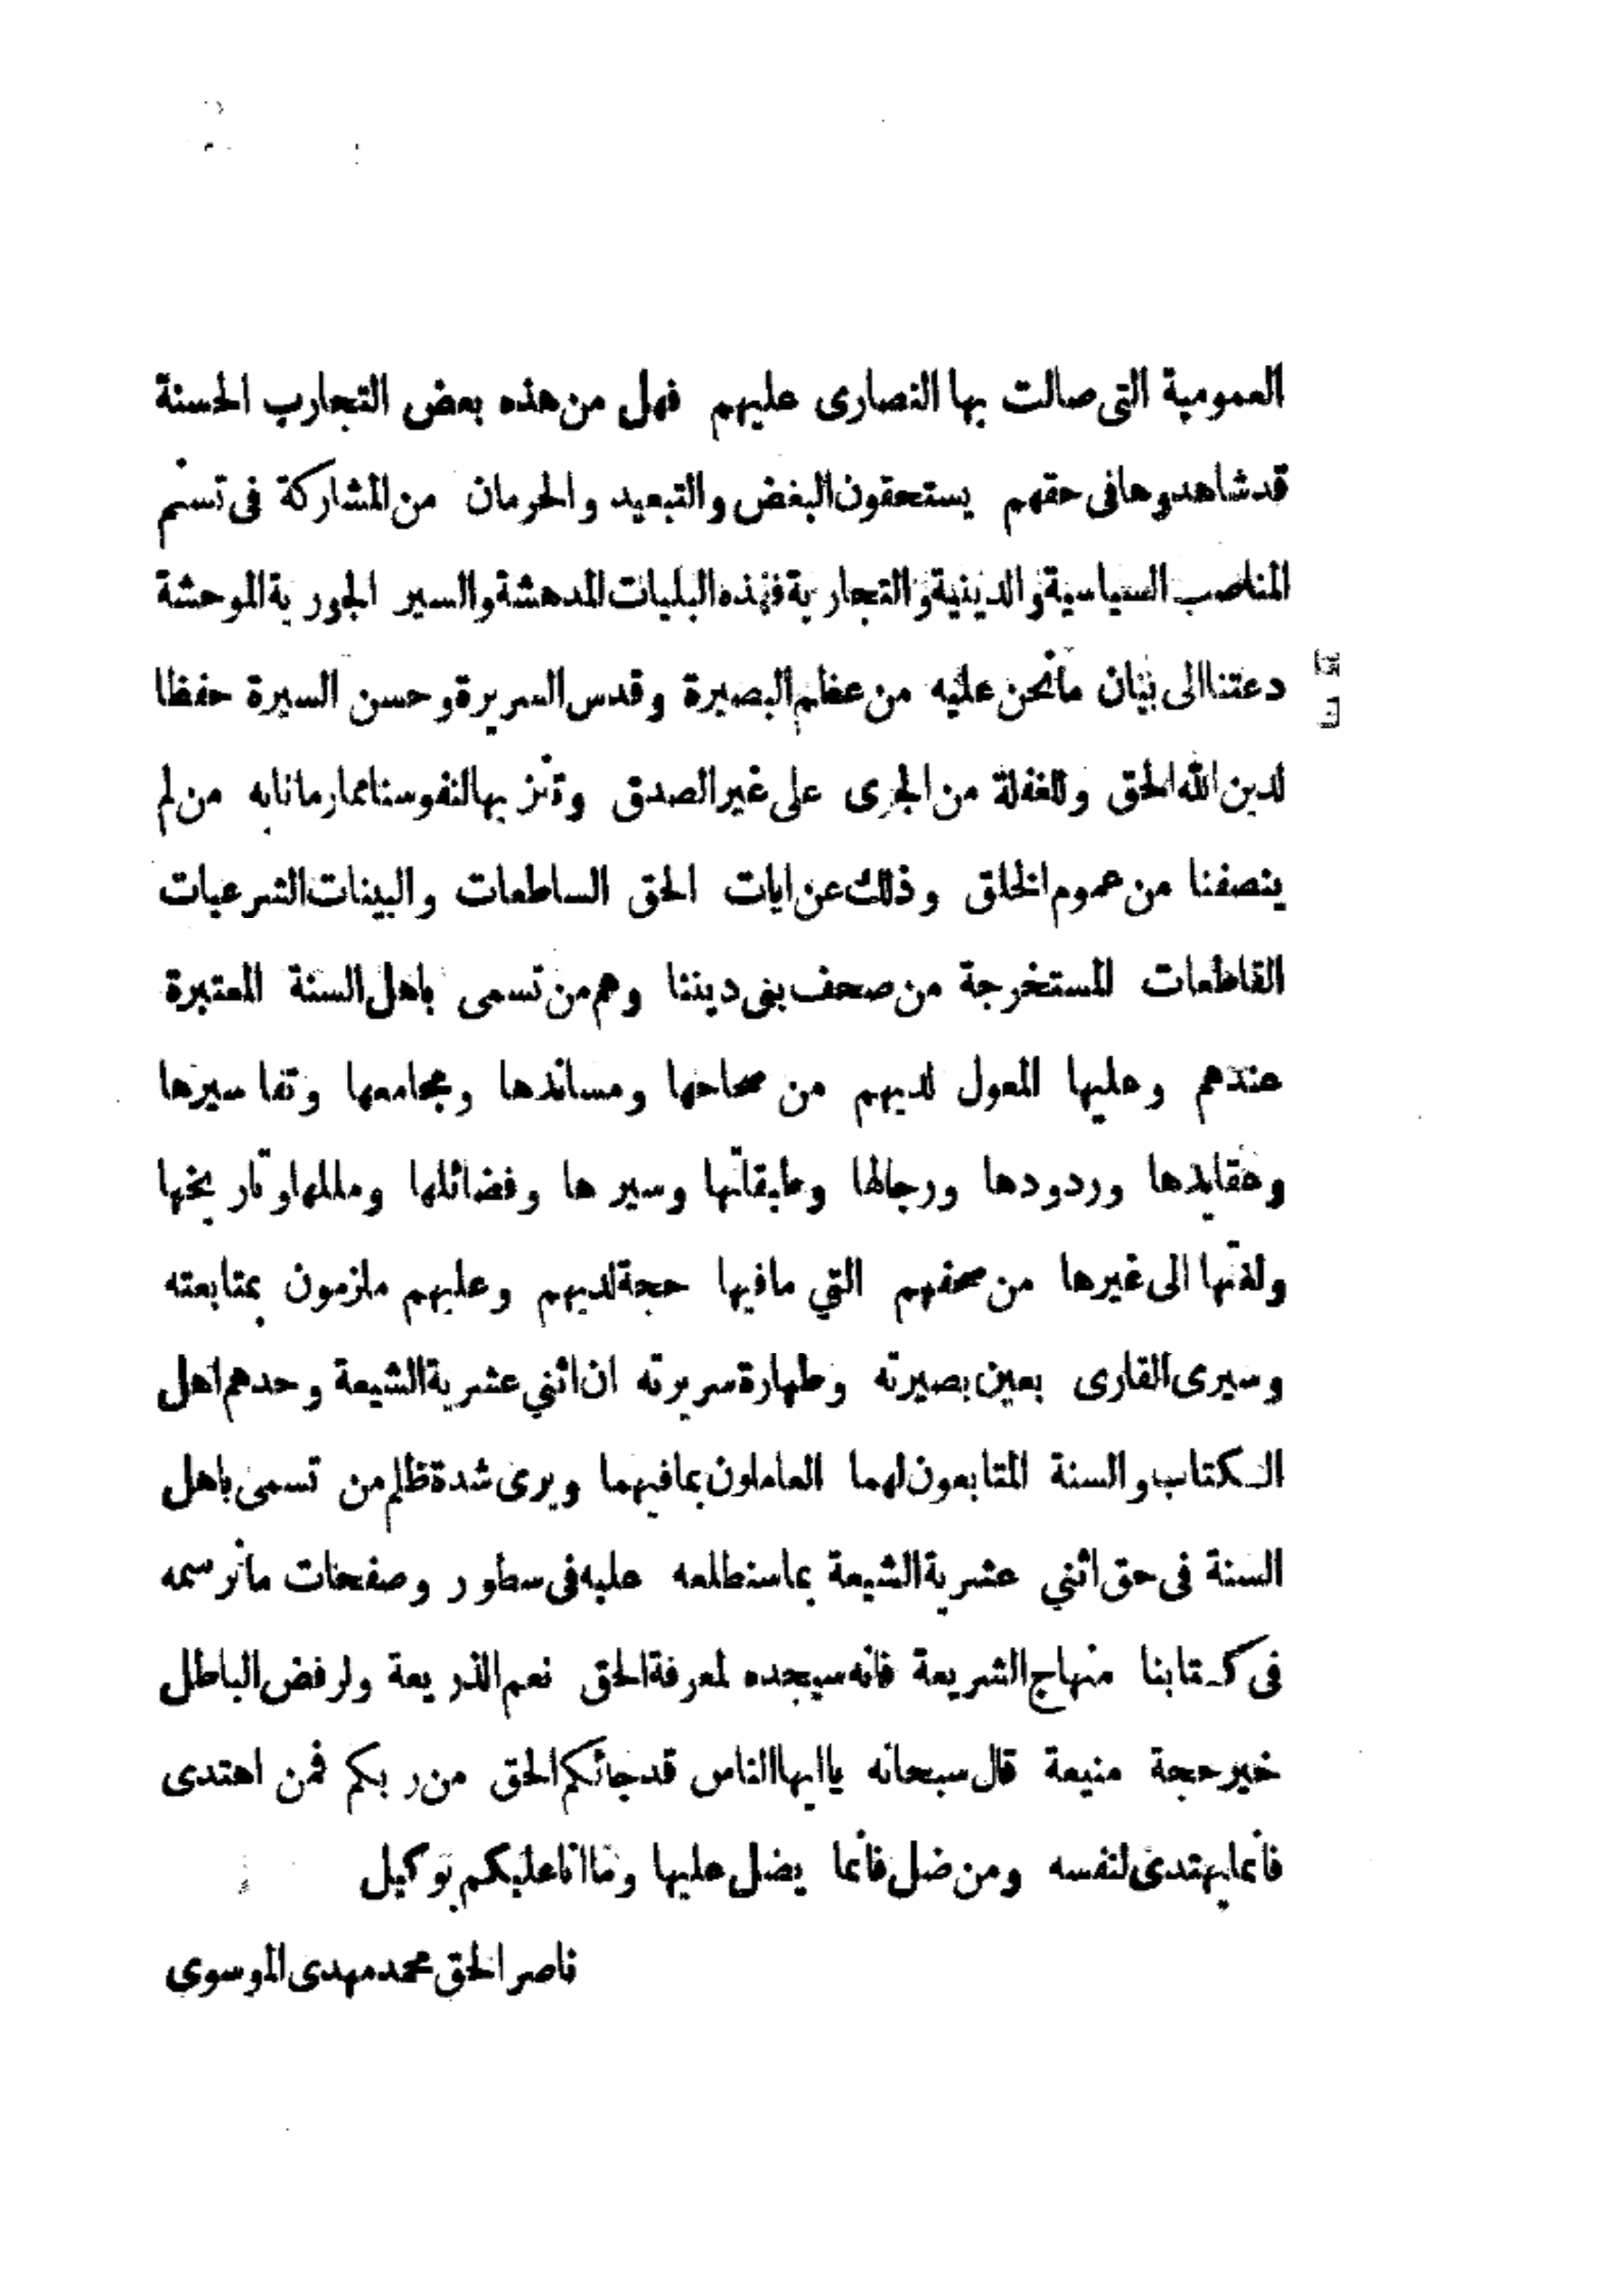 العمومية التى صالت بها النصارى عليهم فهل من هذه بعض التجارب الحسنة
قد شاهدوها فى حقهم يستحقون البغض والتبعيد والحرمان من المشاركة فى تسنم
المناصب السياسية والدينية والتجارية فهذه البليات المدهشة والسير الجورية الموحشة
دعتنا الى بيان ما نحن عليه من عظم البصيرة وقدس السريرة وحسن السيرة حفظا
لدين الله الحق وللغفلة من الجرى على غير الصدق وتنزيها لنفوسنا مما رمانا به من لم
ينصفنا من عموم الخلق وذلك عن ايات الحق الساطعات والبينات الشرعيات
القاطعات المستخرجة من صحف بنى ديننا وهم من تسمى باهل السنة المعتبرة
عندهم وعليها المعول لديهم من صحاحها ومساندها ومجامعها وتفاسيرها
وعقايدها وردودها ورجالها وطبقاتها وسيرها وفضائلها ومللها وتاريخها
ولغتها الى غيرها من صحفهم التي مافيها حجة لديهم وعليهم ملزمون بمتابعته
وسيرى القارى بعين بصيرته وطهارة سريرته ان اثني عشرية الشيعة وحدهم اهل
الكتاب والسنة المتابعون لهما العاملون بمافيهما ويرى شدة ظلم من تسمى باهل
السنة فى حق اثني عشرية الشيعة بما سنطلعه عليه فى سطور وصفحات ما نرسمه
فى كتابنا منهاج الشريعة فانه سيجده لمعرفة الحق نعم الذريعة ولرفض الباطل
خير حجة منيعة قال سبحانه يا ايها الناس قد جائكم الحق من ربكم فمن اهتدى
فانما يهتدى لنفسه ومن ضل فانما يضل عليها وما انا عليكم بوكيل
ناصر الحق محمد مهدى الموسوى